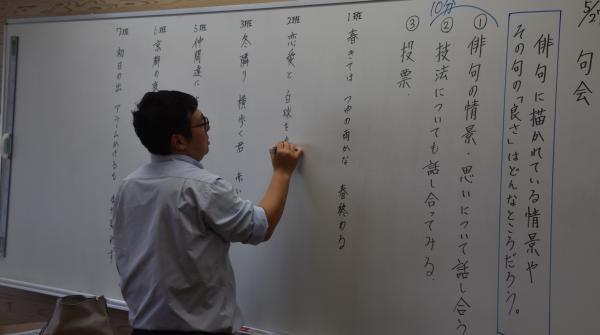 5/2
句会
俳句に描かれている情景や
その句の「良さ」はどんなところだろう。
10分
① 俳句の情景・思いについて話し合う
② 技法についても話し合ってみる.
③ 投票.
1班 春きては つゆの雨かな 春終わる
2班 恋愛と 白球を
3班 冬隣り 横歩く君
5班 仲間達に
6班 京都の
7班 初日の出 アラームかけるも